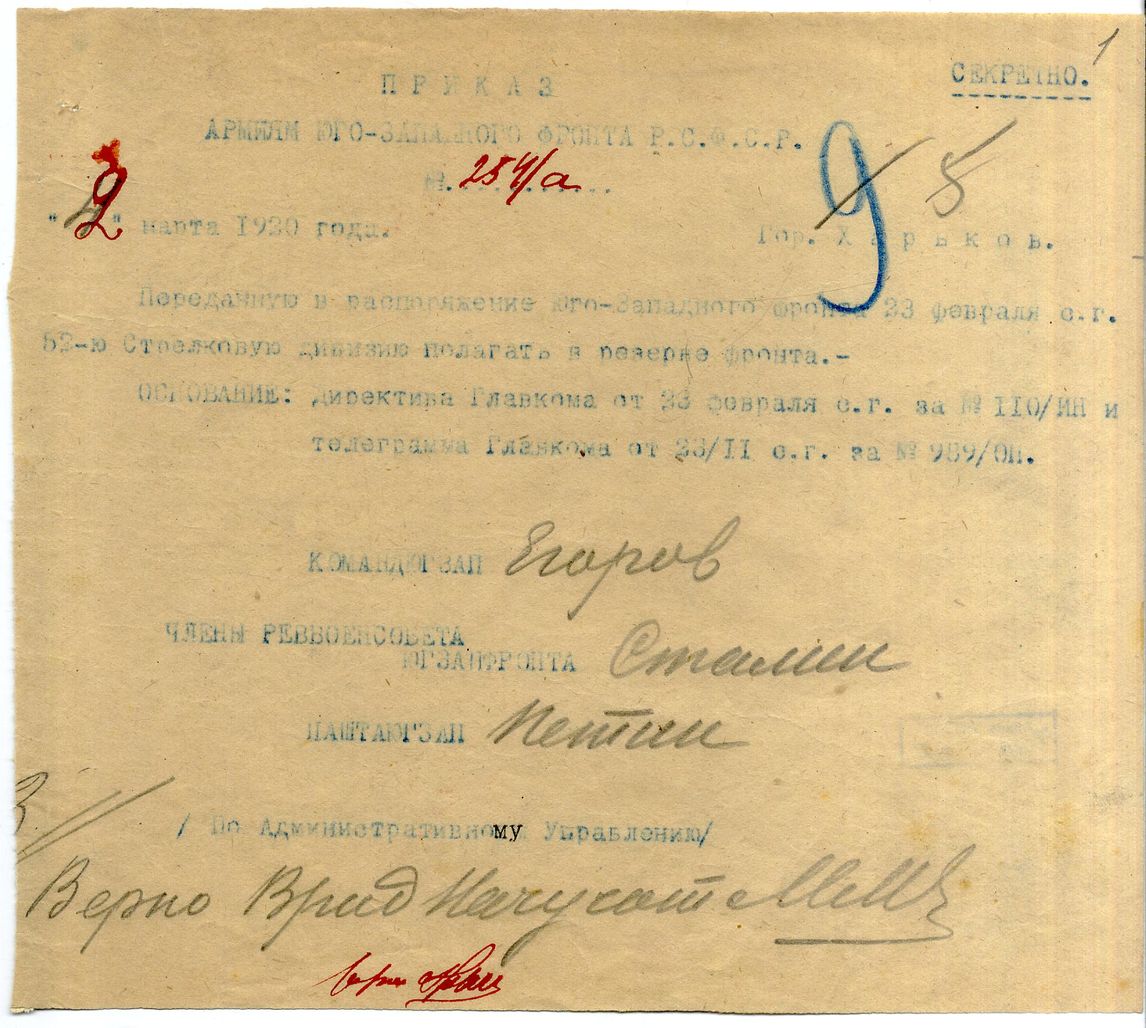 1
СЕКРЕТНО.
ПРИКАЗ
АРМИЯМ ЮГО-ЗАПАДНОГО ФРОНТА Р.С.Ф.С.Р.
№. 254/а
9 8
"2" марта 1920 года. Гор. Харьков.
Переданную в распоряжение Юго-Западного фронта 23 февраля с.г.
52-ю Стрелковую дивизию полагать в резерве фронта.-
ОСНОВАНИЕ: Директива Главкома от 23 февраля с.г. за № 110/ИН и
телеграмма Главкома от 23/II с.г. за № 989/ОП.
КОМАНДЮГЗАП Егоров
ЧЛЕНЫ РЕВВОЕНСОВЕТА
ЮГЗАПФРОНТА Сталин
НАШТАЮГЗАП Петин
/ По Административному Управлению/
Верно Врид